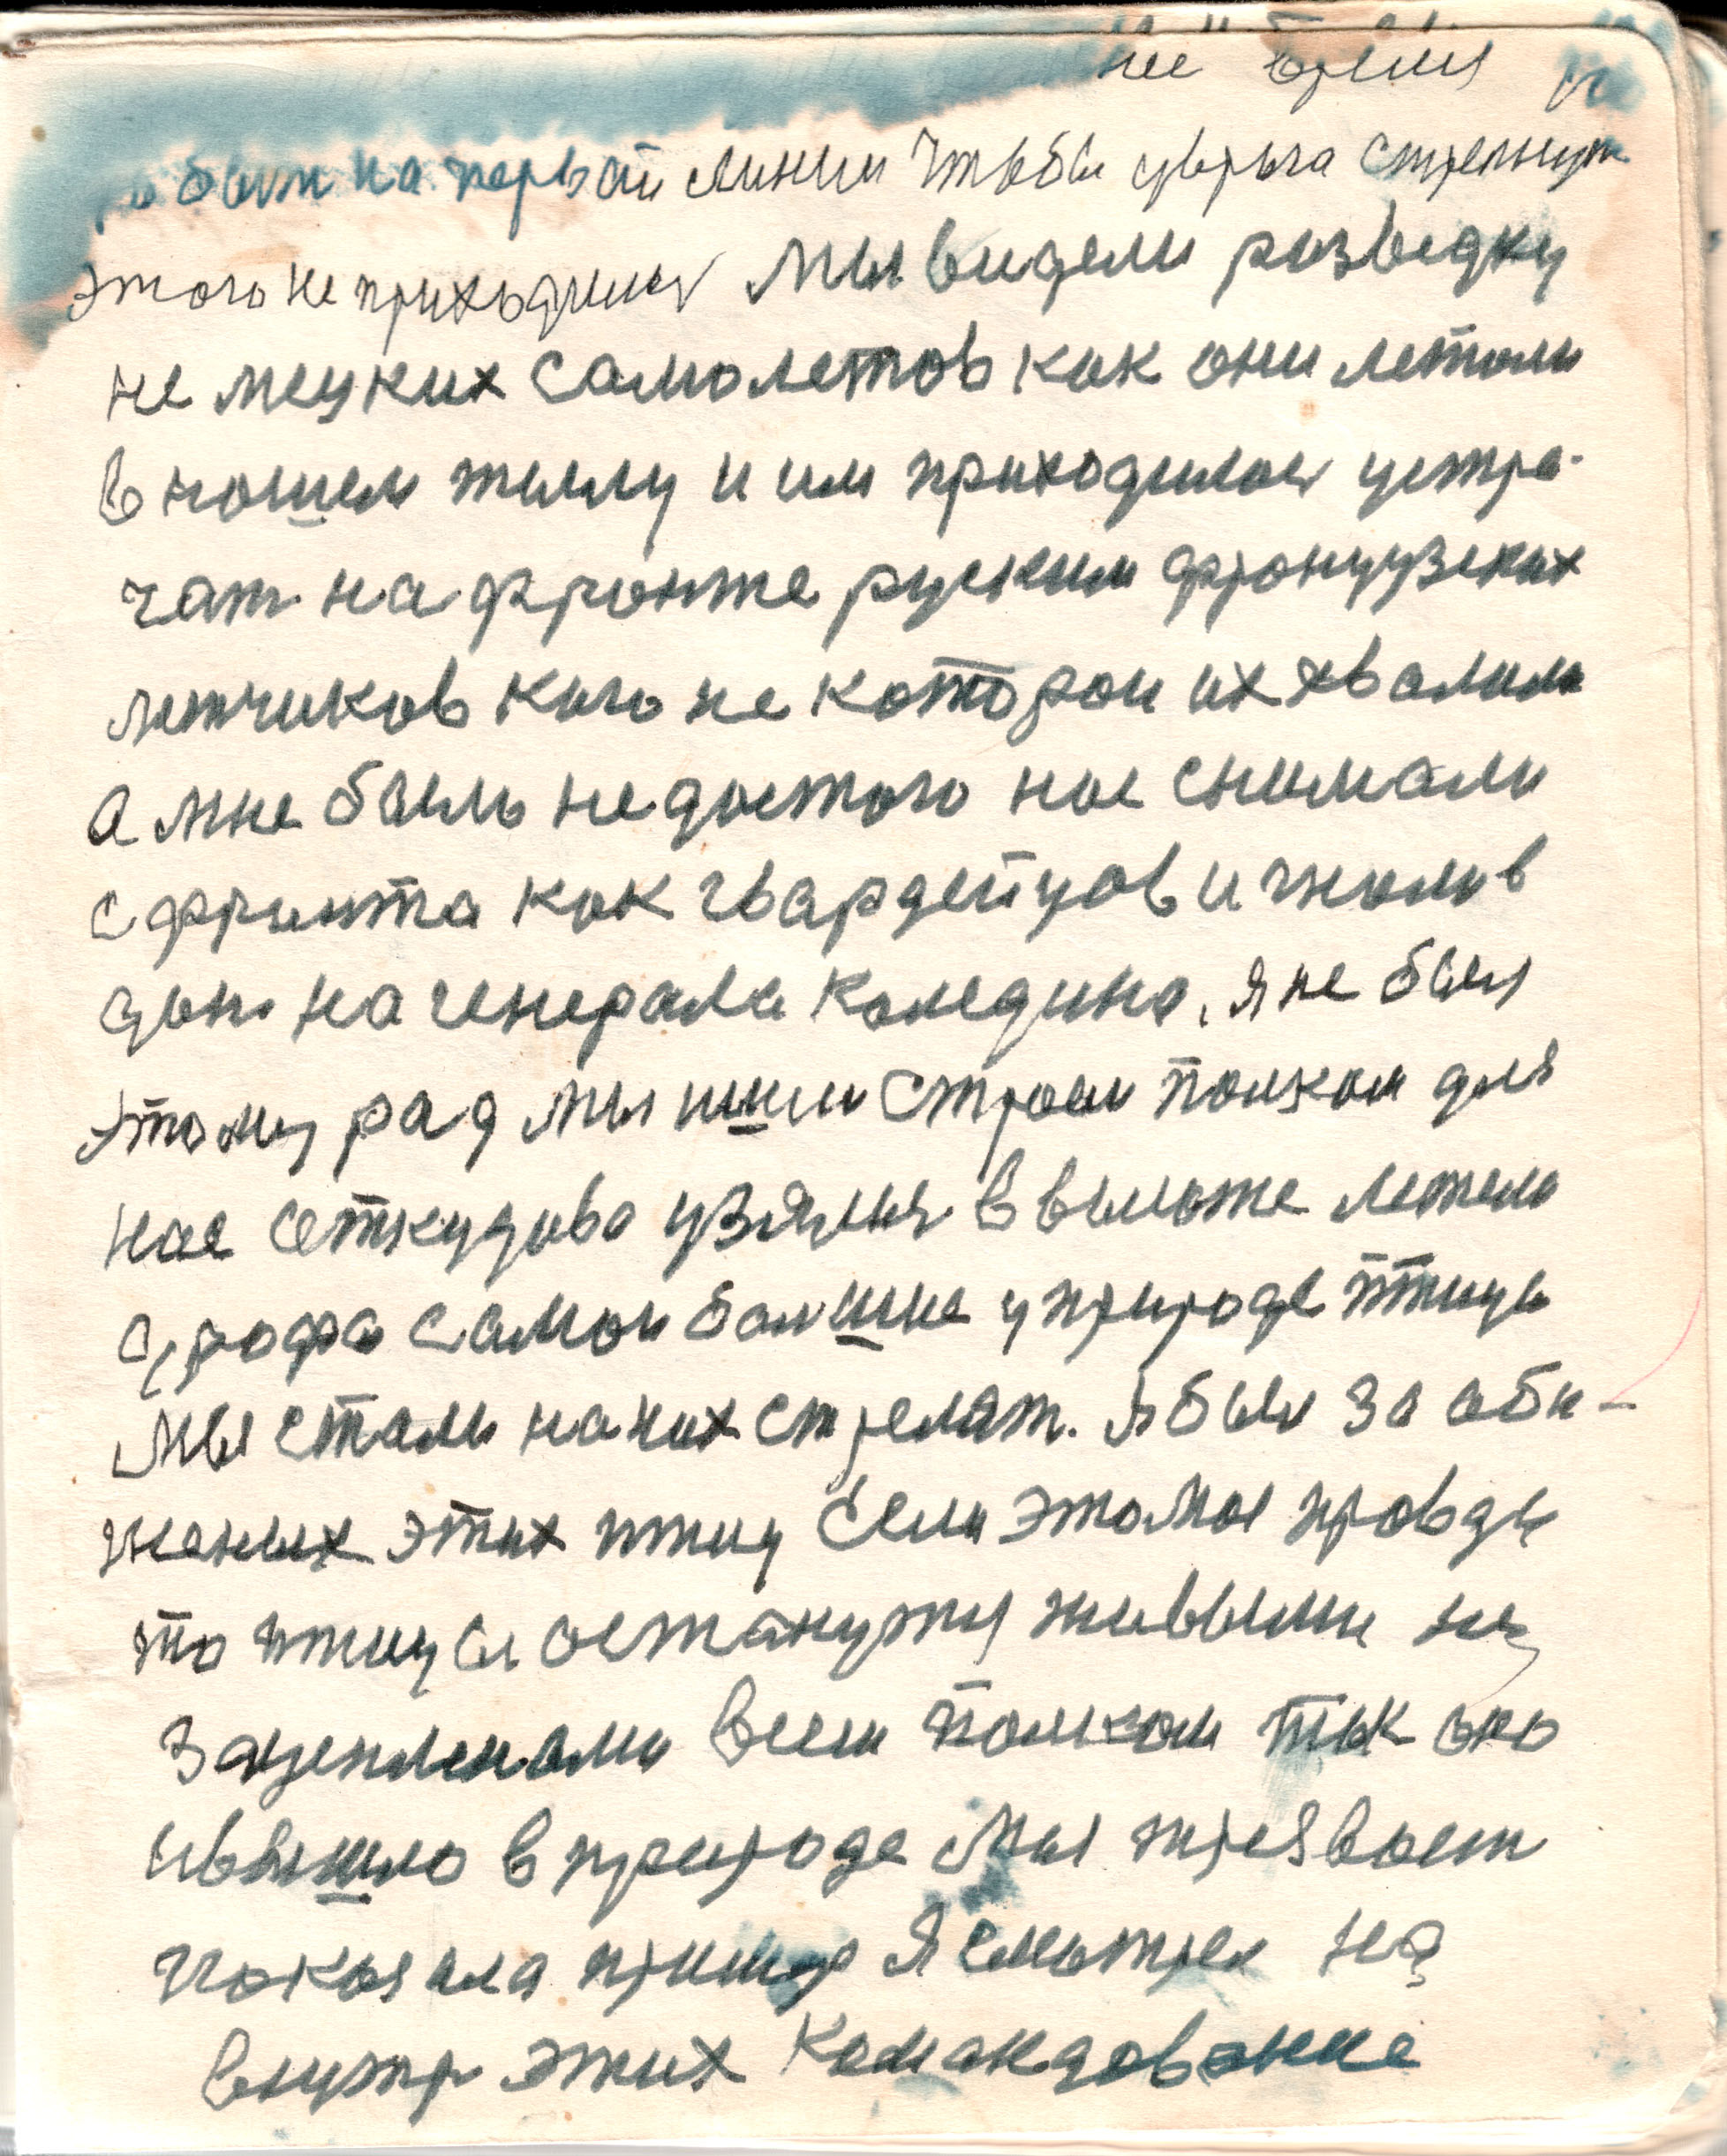 не время
быт на первай линии чтобы уврага стрелнут
этого не приходилос мы видели разведку
не мецких самолетов как они летали
в нашем тылу и им приходилос устре-
чат на фронте руским французских
летчиков кого не которои их хвалили
а мне было не достого нас снимали
с фронта как гвардейцов и гнали в
дон на генерала Каледина, я не был
этому рад мы шли строем полком для
нас откудова узялис в вылоте летели
дрофа самои болшие у природе птицы
мы стали на них стрелят. я был за аби-
женых этих птиц Если это мая правда
то птицы астанутся живыми не
зацепленами всем полком так оно
ивышло в природе мы трезвост
показала пример Я смотрел на
внутр этих Командование